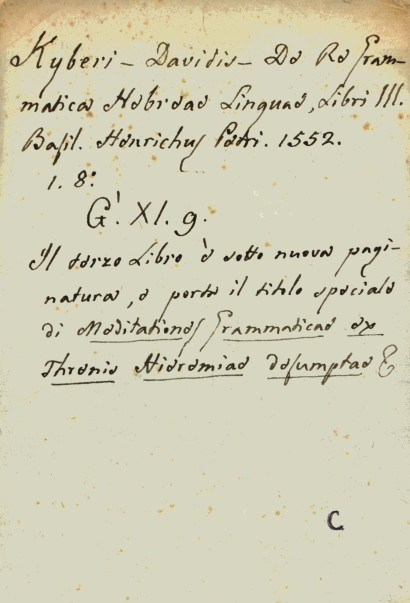 Kyberi - Davidis - De Re Gram-
matica Hebreae Linguae, Libri III.
Basil. Henrichus Petri. 1552.
1. 8.°
G. XI. 9.
Il terzo Libro è sotto nuova pagi-
natura, e porta il titolo speciale
di Meditationes Grammaticae ex
Threnis Hieremiae desumptae
C